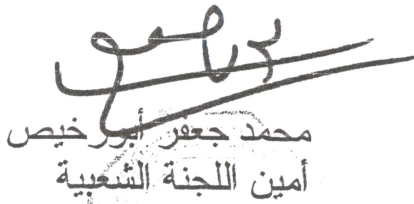 محمد جعفر أبورخيص
أمين اللجنة الشعبية